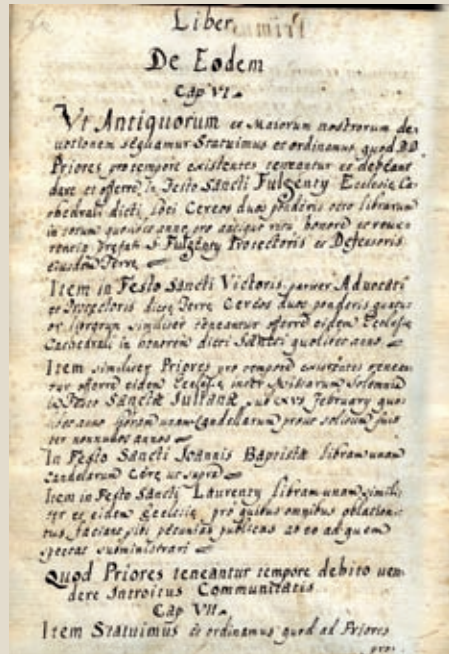 Liber
De Eodem
Cap VI.
Ut Antiquorum et Maiorum nostrorum de,
uotionem sequamur Statuimus et ordinamus quod DD.
Priores pro tempore existentes teneantur et debeant
dare et offerre in Festo Sancti Fulgenty Ecclesiæ Ca,
thedrali dicti loci Cereos duos ponderis octo librarum
in totum quolibet anno pro antiquo ritu, honore et reue,
rentia Prefati S. Fulgenty Protectoris et Defensoris
eiusdem Terre
Item in Festo Sancti Victoris pariter Advocati
et Protectoris dicte Terre Cereos duos ponderis quatu,
or librarum similiter teneantur offerre eidem Ecclesiæ
Cathedrali in honorem dicti Sancti quolibet anno
Item similiter Priores pro tempore existentes tenean,
tur offerre eidem Ecclesiæ Missarum Solemnia
in Festo Sanctæ Iulianæ sub XVI February quo,
libet anno libram unam Candelarum prout solitum fuit
ter nonnullos annos
In Festo Sancti Ioannis Baptistæ libram unam
Candelarum Cere ut supra
Item in Festo Sancti Laurenty libram unam simili,
ter et eidem Ecclesiæ, pro quibus omnibus oblationi,
bus faciant sibi pecunias publicas ab eo ad quem
spectat subministrari
Quod Priores teneantur tempore debito uen,
dere Introitus Communitatis
Cap VII.
Item Statuimus et ordinamus quod ad Priores